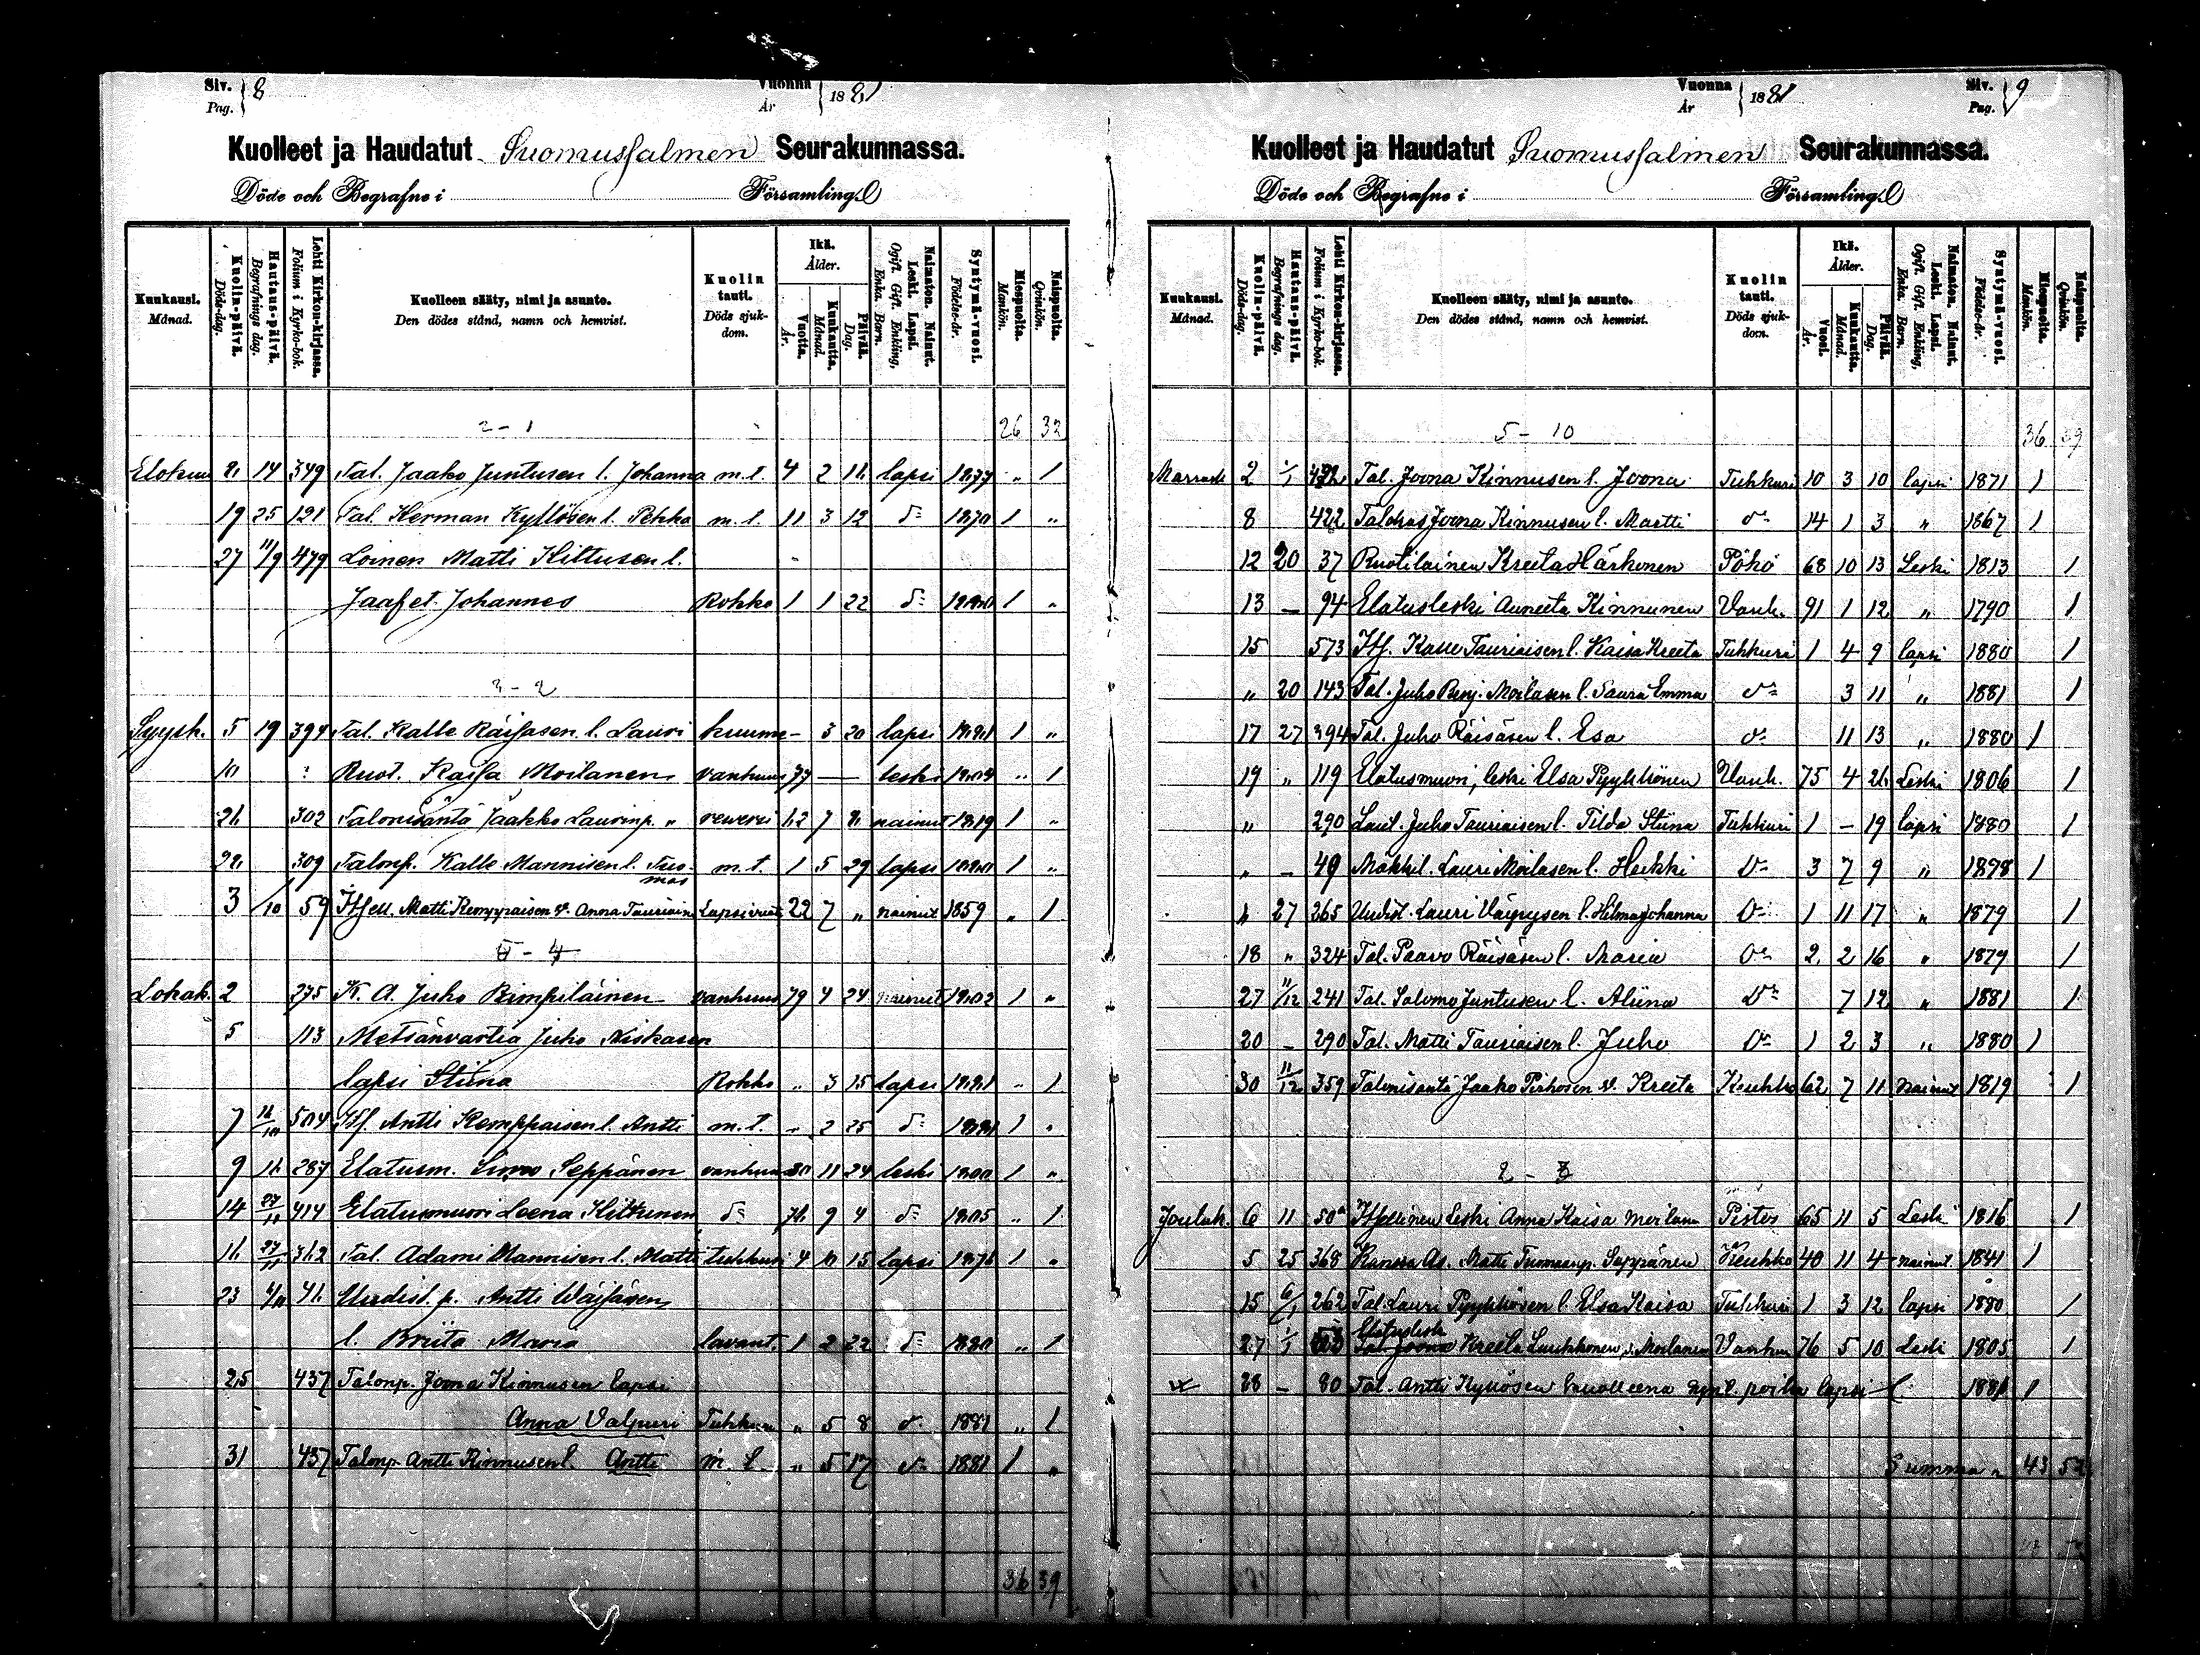 Siv. Pag. 8
Vuonna År 1881
Kuolleet ja Haudatut Suomussalmen Seurakunnassa.
Döde och Begrafne i Församling
Kuukausi. Månad.
Kuolin-päivä. Döds-dag.
Hautaus-päivä. Begrafnings dag.
Lehti Kirkon-kirjassa. Folium i Kyrko-bok.
Kuolleen sääty, nimi ja asunto. Den dödes stånd, namn och hemvist.
Kuolin tauti. Döds sjukdom.
Ikä. Ålder.
Vuotta. År.
Kuukautta. Månad.
Päivää. Dag.
Naimaton. Nainut. Leski. Lapsi. Ogift. Gift. Enkling. Enka. Barn.
Syntymä-vuosi. Födelse-år.
Miespuolta. Mankön.
Naispuolta. Qvinkön.
2 - 1 26 32
Elokuu 8 14 349 Tal. Jaako Juntusen l. Johanna m.t. 4 2 11 lapsi 1877 " 1
19 25 121 Tal. Herman Kyllösen l. Pekka m.t. 11 3 12 d:o 1870 1 "
27 11/9 479 Loinen Matti Kittusen l.
Jaafet Johannes Rohko 1 1 22 d:o 1880 1 "
3 - 2
Syysk. 5 19 394 Tal. Kalle Räisäsen l. Lauri kuume - 3 20 lapsi 1881 1 "
10 Ruot. Kaisa Moilanen vanhuus 77 — leski 1804 " 1
302 Talonisäntä Jaakko Laurinp. " 62 7 8 nainut 1819 1 "
309 Talonp. Kalle Mannisen l. Tuomas m.t. 1 5 29 lapsi 1880 1 "
3 /10 59 Itsell. Matti Kemppaisen v. Anna 22 7 " nainut 1859 " 1
5 - 4
Lokak. 2 275 K. A. Juho Pimpiläinen vanhuus 79 4 24 nainut 1802 1 "
5 113 Metsänvartia Juho Niskasen
lapsi Stiina Rohko " 3 15 lapsi 1881 " 1
7 16/10 504 Its. Antti Kemppaisen l. Antti m.t. - 2 25 d:o 1881 1 "
9 16 287 Elatusm. Simo Seppänen vanhuus 80 11 24 leski 1800 1 "
14 27/11 414 Elatusmuori Leena Kittunen d:o 76 9 4 d:o 1805 " 1
16 27/11 362 Tal. Adami Mannisen l. Matti tuhkuri 4 10 15 lapsi 1876 1 "
23 46 Uudist. p. Antti Wäisäsen
l. Briita Maria lavant. 1 2 22 d:o 1880 " 1
25 437 Talonp. Joona Kinnusen lapsi
Anna Valpuri Tuhkuri " 5 8 d:o 1881 " 1
31 437 Talonp. Antti Kinnusen l. Antti m. t. " 5 17 d:o 1881 1 "
36 39
Vuonna År 1881
Siv. Pag. 9
Kuolleet ja Haudatut Suomussalmen Seurakunnassa.
Döde och Begrafne i Församling
Kuukausi. Månad.
Kuolin-päivä. Döds-dag.
Hautaus-päivä. Begrafnings dag.
Lehti Kirkon-kirjassa. Folium i Kyrko-bok.
Kuolleen sääty, nimi ja asunto. Den dödes stånd, namn och hemvist.
Kuolin tauti. Döds sjukdom.
Ikä. Ålder.
Vuosi. År.
Kuukautta. Månad.
Päivää. Dag.
Naimaton. Nainut. Leski. Lapsi. Ogift. Gift. Enkling. Enka. Barn.
Syntymä-vuosi. Födelse-år.
Miespuolta. Mankön.
Naispuolta. Qvinkön.
5 - 10 36 39
Marrask 2 1/1 422 Tal. Joona Kinnusen l. Joona Tuhkuri 10 3 10 lapsi 1871 1
8 422 Joona Kinnusen l. Martti d:o 14 1 3 " 1867 1
12 20 37 Ruotilainen Kreeta Härkönen Pöhö 68 10 13 Leski 1813 1
13 — 94 Elatusleski Anneeta Kinnunen Vanh. 91 1 12 " 1790 1
15 573 Its. Kalle Tauriaisen l. Kaisa Kreeta Tuhkuri 1 4 9 lapsi 1880 1
" 20 143 Tal. Juho Benj. Moilasen l. Laura Emma d:o 3 11 " 1881 1
17 27 394 Tal. Juho Räisäsen l. Esa d:o 11 13 " 1880 1
19 " 119 Elatusmuori, leski Elsa Pyykkönen Vanh. 75 4 26 Leski 1806 1
" 290 Juho Tauriaisen l. Tilda Stiina Tuhkuri 1 — 19 lapsi 1880 1
" — 49 Mökkil. Lauri Moilasen l. Heikki d:o 3 7 9 " 1878 1
27 265 Uudist. Lauri Väyrysen l. Hilma Johanna d:o 1 11 17 " 1879 1
18 " 324 Tal. Paavo Räisäsen l. Maria d:o 2 2 16 " 1879 1
27 11/12 241 Tal. Salomo Juntusen l. Aliina d:o 7 12 " 1881 1
20 — 290 Tal. Matti Tauriaisen l. Juho d:o 1 2 3 " 1880 1
30 11/12 359 Talonisäntä Jaako Pirhosen v. Kreeta Keuhko 62 7 11 nainut 1819 1
2 - 3
Jouluk. 6 11 50 Itsellinen Leski Anna Kaisa Moilanen Pistos 65 11 5 Leski 1816 1
5 25 368 Kansan As. Matti Tuomaanp. Seppänen Keuhko 40 11 4 nainut 1841 1
15 6/1 262 Tal. Lauri Pyykkösen l. Elsa Kaisa Tuhkuri 1 3 12 lapsi 1880 1
27 1/1 Elatusleski Kreeta Luukkonen, s. Moilanen Vanhuus 76 5 10 Leski 1805 1
28 — 80 Tal. Antti Kyllösen kuolleena synt. poika lapsi 1881 1
Summa 43 52